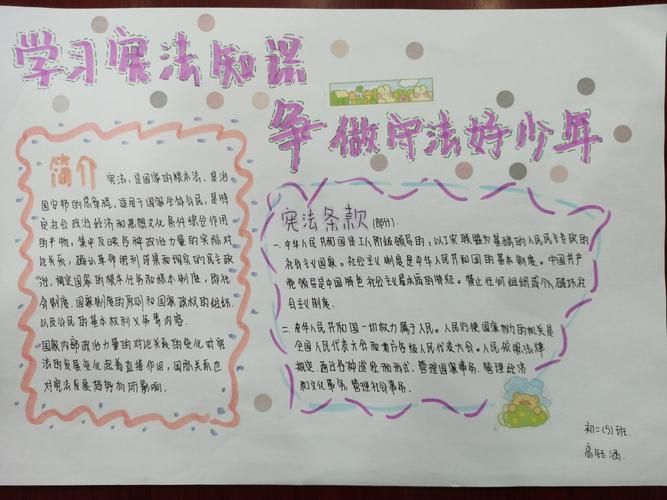 学习宪法知识
争做守法好少年
简介
宪法,是国家的根本法,是治
国安邦的总章程,适用于国家全体公民,是特
定社会政治经济和思想文化条件综合作用
的产物,集中反映各种政治力量的实际对
比关系,确认革命胜利成果和现实的民主政
治,规定国家的根本任务和根本制度,即社
会制度、国家制度的原则和国家政权的组织
以及公民的基本权利义务等内容.
国家内部政治力量的对比关系的变化对宪
法的发展变化起着直接作用,国际关系也
对宪法发展趋势有所影响.
宪法条款(部分):
一.中华人民共和国是工人阶级领导的,以工农联盟为基础的人民民主专政的
社会主义国家。社会主义制度是中华人民共和国的基本制度。中国共产
党领导是中国特色社会主义最本质的特征。禁止任何组织或个人破坏社
会主义制度.
二.中华人民共和国一切权力属于人民。人民行使国家权力的机关是
全国人民代表大会和地方各级人民代表大会。人民依照法律
规定,通过各种途径和形式,管理国家事务,管理经济
和文化事务,管理社会事务.
初二(5)班.
高钰涵.